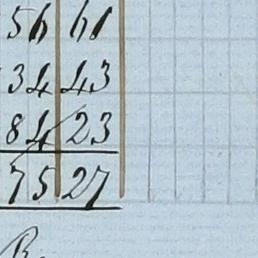 56 61
34 43
84 23
75 27